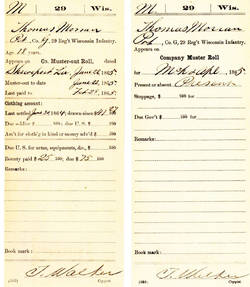 M | 29 | Wis.
Thomas Morran
Pvt., Co. G, 29 Reg't Wisconsin Infantry.
Age 18 years.
Appears on Co. Muster-out Roll, dated
Shreveport La., June 22, 1865.
Muster-out to date June 22, 1865.
Last paid to Feb 28, 1865.
Clothing account:
Last settled 1864; drawn since $
Due soldier $ 100; due U. S. $ 100
Am't for cloth'g in kind or money adv'd $ 100
Due U. S. for arms, equipments, &c., $ 100
Bounty paid $ 25 100; due $ 75 100
Remarks:
Book mark:
T. Walker
Copyist.
M | 29 | Wis.
Thomas Morran
Pvt., Co. G, 29 Reg't Wisconsin Infantry.
Appears on
Company Muster Roll
for , 1865.
Present or absent Present
Stoppage, $ 100 for
Due Gov't $ 100 for
Remarks:
Book mark:
T. Walker
Copyist.